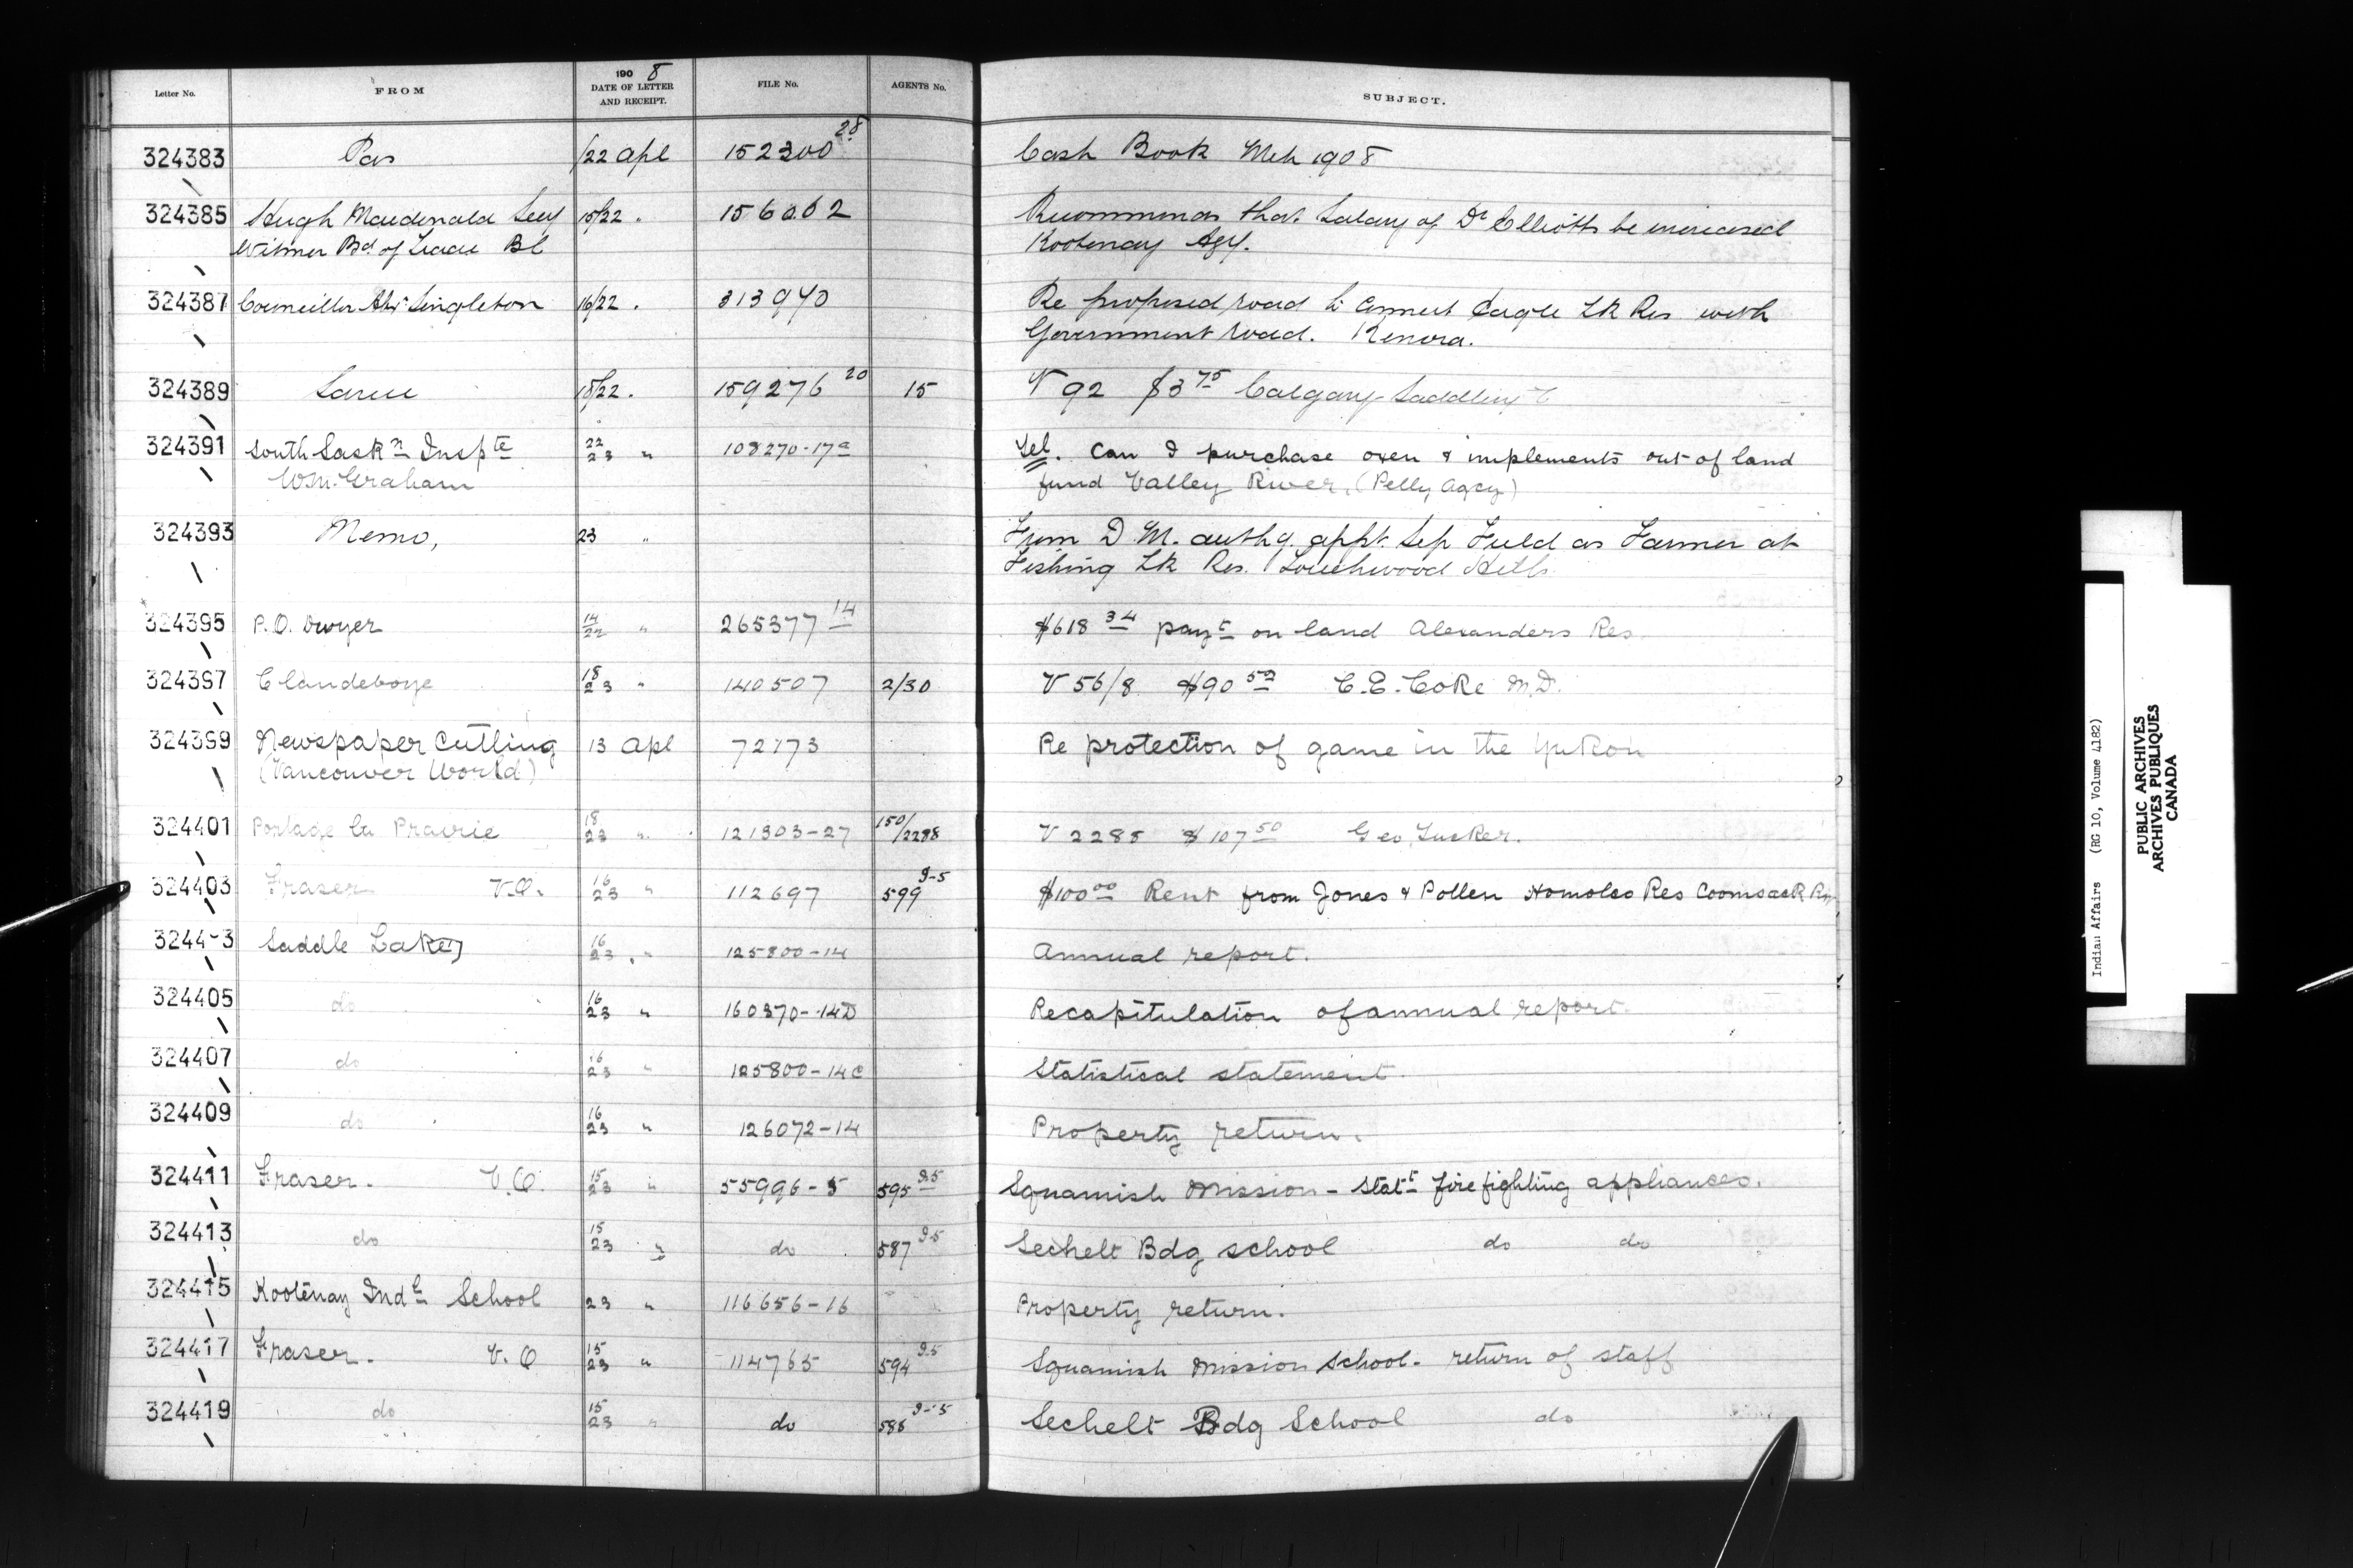 Letter No. FROM 190 8 DATE OF LETTER AND RECEIPT. FILE No. AGENTS No. SUBJECT.
324383 Pas /22 Apl 152300 28 Cash Book Mch 1908
324385 Hugh Macdonald Secy 15/22 . 156062 Recommends that Salary of Dr Elliott be increased
Wilmer Bd of Trade BC Kootenay Agy.
324387 Councillor Singleton 16/22 . 313940 Re proposed road to connect Eagle Lk Res with
Government road. Kenora.
324389 Sarcee 18/22 . 159276 20 15 V 92 $3 75 Calgary Saddlery C
324391 South Saskn Inspte 22/23 " 108270-17a Tel. Can I purchase oxen & implements out of land
Wm. Graham fund Valley River, (Pelly Agcy)
324393 Memo, 23 " From D M. authg. appt. Sep Field as Farmer at
Fishing Lk Res. Touchwood Hills
324395 P.O. Dwyer 14/22 " 265377 14 $618 34 payt on land Alexanders Res.
324397 Clandeboye 18/23 " 140507 2/30 V 56/8 $90 50 C.E. Coke M.D.
324399 Newspaper Cutting 13 Apl 72173 Re protection of game in the Yukon
(Vancouver World)
324401 Portage la Prairie 18/23 " 121303-27 150/2288 V 2288 $107 50 Geo. Tucker.
324403 Fraser V.O. 16/23 " 112697 599 9-5 $100 00 Rent from Jones & Pollen Homolco Res Coomsack
3244-3 Saddle Lake 16/23 " 125800-14 Annual report.
324405 do 16/23 " 160370-14D Recapitulation of annual report.
324407 do 16/23 " 125800-14C Statistical statement.
324409 do 16/23 " 126072-14 Property return.
324411 Fraser. V.O. 15/23 " 55996-5 595 9-5 Squamish Mission - Statt fire fighting appliances.
324413 do 15/23 " do 587 9-5 Sechelt Bdg school do do
324415 Kootenay Indl School 23 " 116656-16 Property return.
324417 Fraser. V.O 15/23 " 114765 594 9-5 Squamish Mission School - return of staff
324419 do 15/23 " do 586 9-5 Sechelt Bdg School do
Indian Affairs (RG 10, Volume 4182)
PUBLIC ARCHIVES
ARCHIVES PUBLIQUES
CANADA